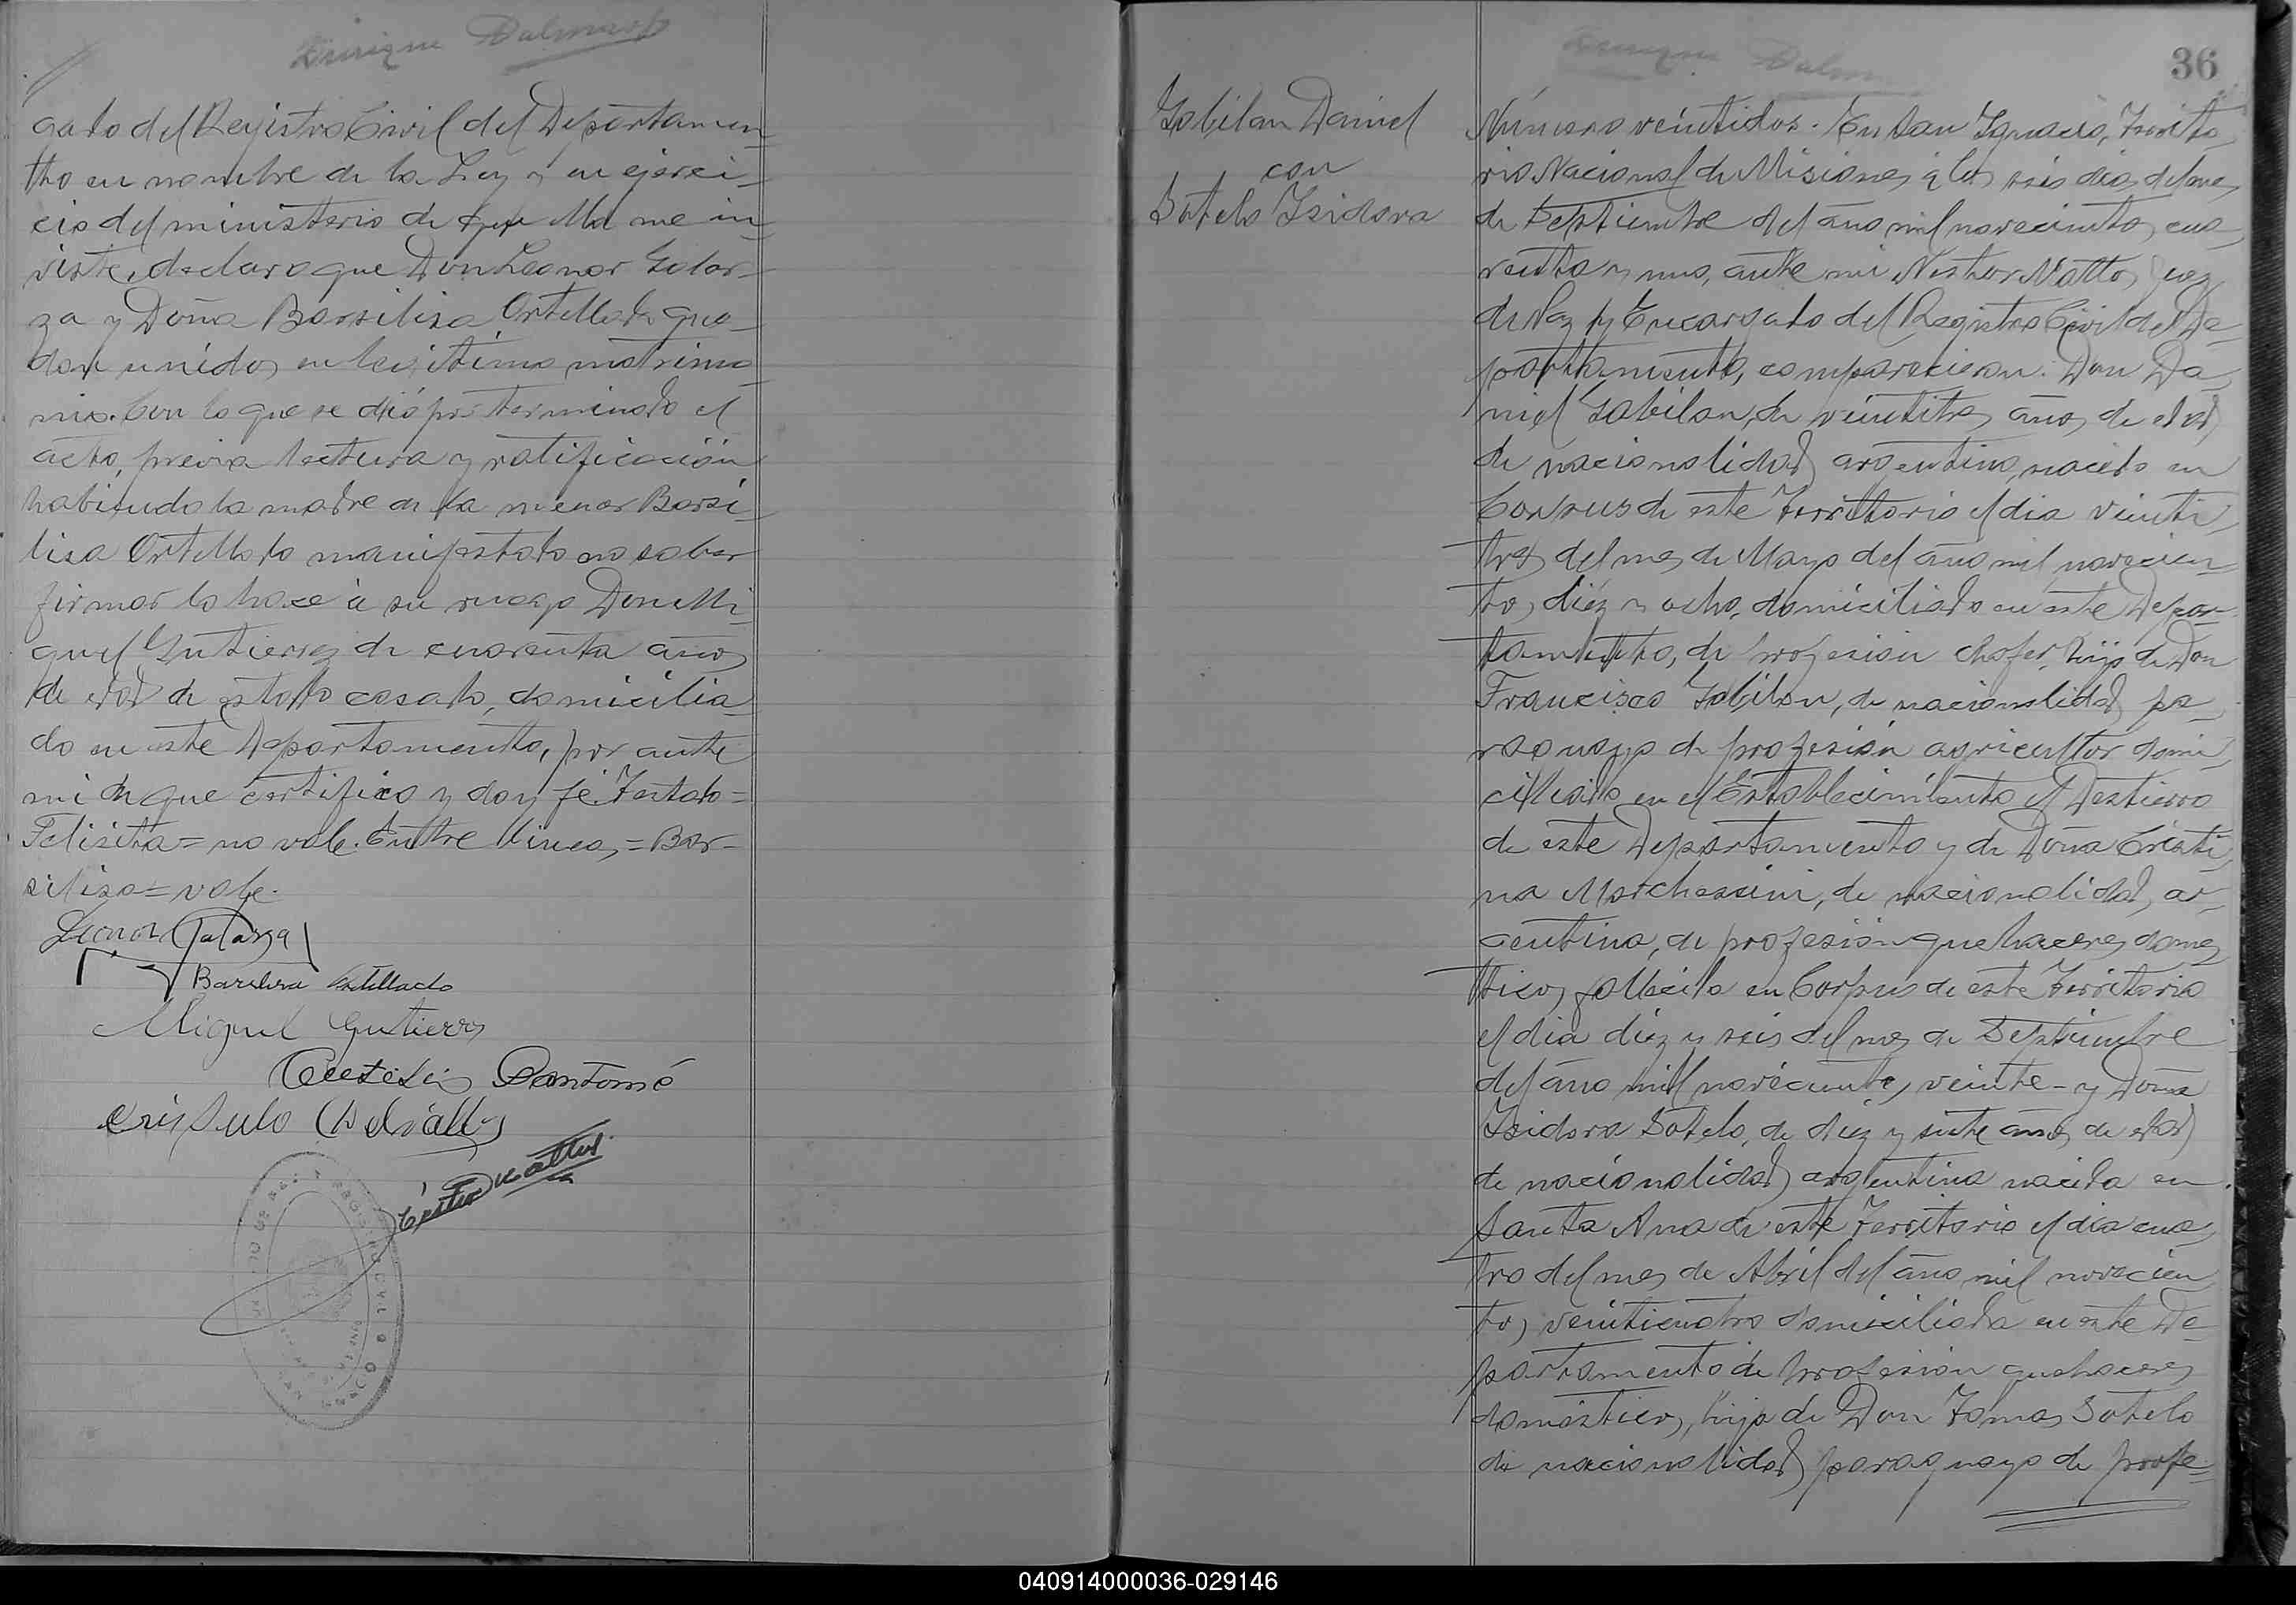 Enrique Dalmas
gado del Registro Civil del Departamen-
tto en nombre de la Ley y en ejerci-
cio del ministerio de que Ella me in-
viste, declaro que Don Leonor Galar-
za y Doña Barsilisa Ortellado que-
dan unidos en legitimo matrimo-
nio. Con lo que se dió por terminado el
acto, previa lectura y ratificación
habiendo la madre de la menor Barsi-
lisa Ortellado manifestado no saber
firmar lo hace á su ruego Don Mi-
guel Gutierrez de cuarenta años
de edad de estado casado, domicilia-
do en este Departamento, por ante
mi de que certifico y doy fé. Testado=
Felisita= no vale. Entre lineas,= Bar-
silisa= vale.
Leonor Galarza
Barsilisa Ortellado
Miguel Gutierrez
Santomé
Crispulo Delvalle
Nestor Matto
36
Gabilan Daniel
con
Sotelo Isidora
Número veintidos. En San Ignacio, Territo-
rio Nacional de Misiones, á los seis dias del mes
de Septiembre del año mil novecientos cua-
renta y uno, ante mi Nestor Matto, Juez
de Paz y Encargado del Registro Civil del De-
partamento, comparecieron: Don Da-
niel Gabilan, de veintitres años de edad
de nacionalidad argentino, nacido en
Corpus de este Territorio el dia veinti-
tres del mes de Mayo del año mil novecien-
tos diéz y ocho, domiciliado en este Depar-
tamento, de profesion chofer, hijo de Don
Francisco Gabilan, de nacionalidad pa-
raguayo de profesión agricultor domi-
ciliado en el Establecimiento El Destierro
de este Departamento y de Doña Cristi-
na Marchessini, de nacionalidad, ar-
gentina, de profesión quehaceres domes-
ticos, fallecida en Corpus de este Territorio
el dia diéz y seis del mes de Septiembre
del año mil novecientos veinte- y Doña
Isidora Sotelo, de diez y siete años de edad
de nacionalidad argentina nacida en
Santa Ana de este Territorio el dia cua-
tro del mes de Abril del año mil novecien-
tos veinticuatro domiciliada en este De-
partamento de profesión quehaceres
domésticos, hija de Don Tomas Sotelo
de nacionalidad paraguayo de profe-
040914000036-029146